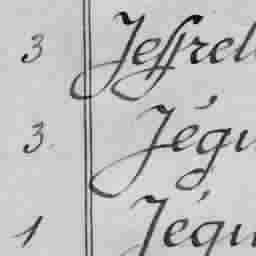 3 Jeffrel
3. Jégu
1 Jégu